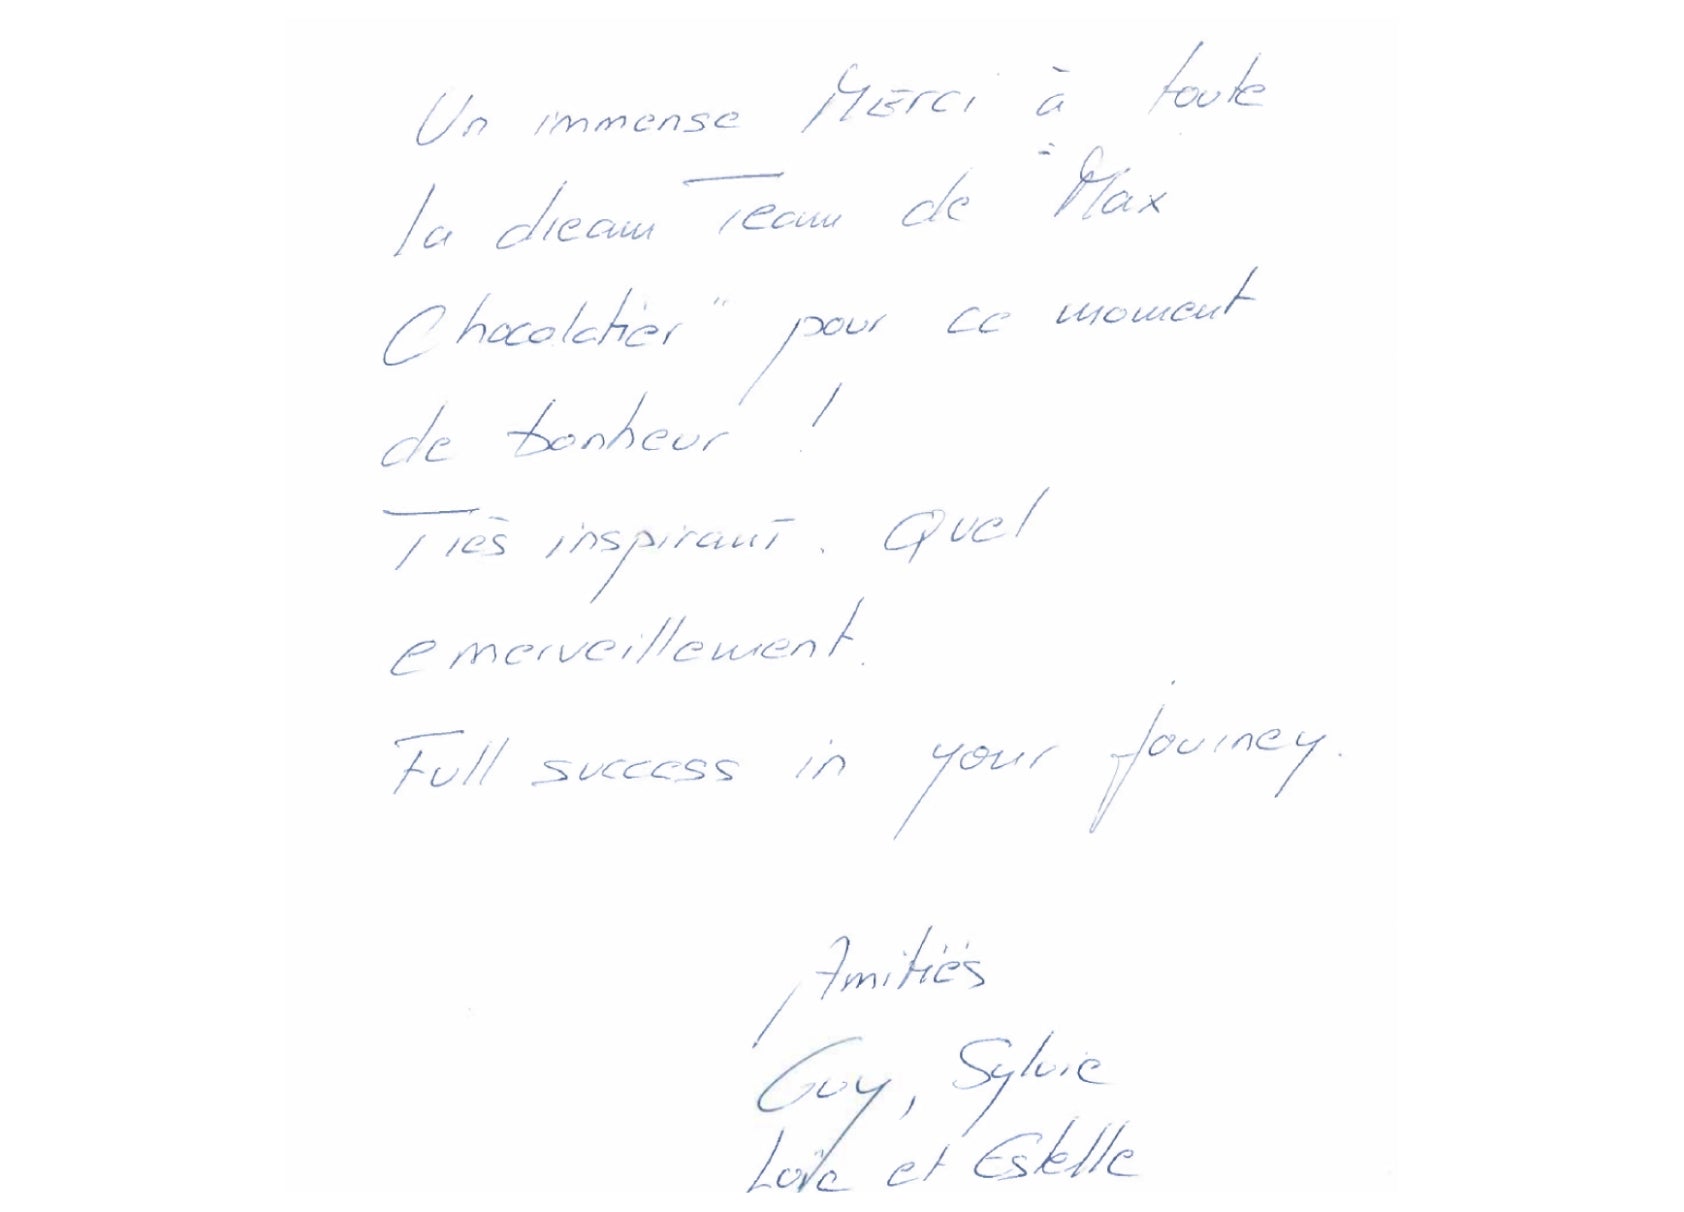 Un immense Merci à toute
la dream Team de "Max
Chocolatier" pour ce moment
de bonheur !
Très inspirant. Quel
emerveillement.
Full success in your journey.
Amitiés
Guy, Sylvie
Loïc et Estelle